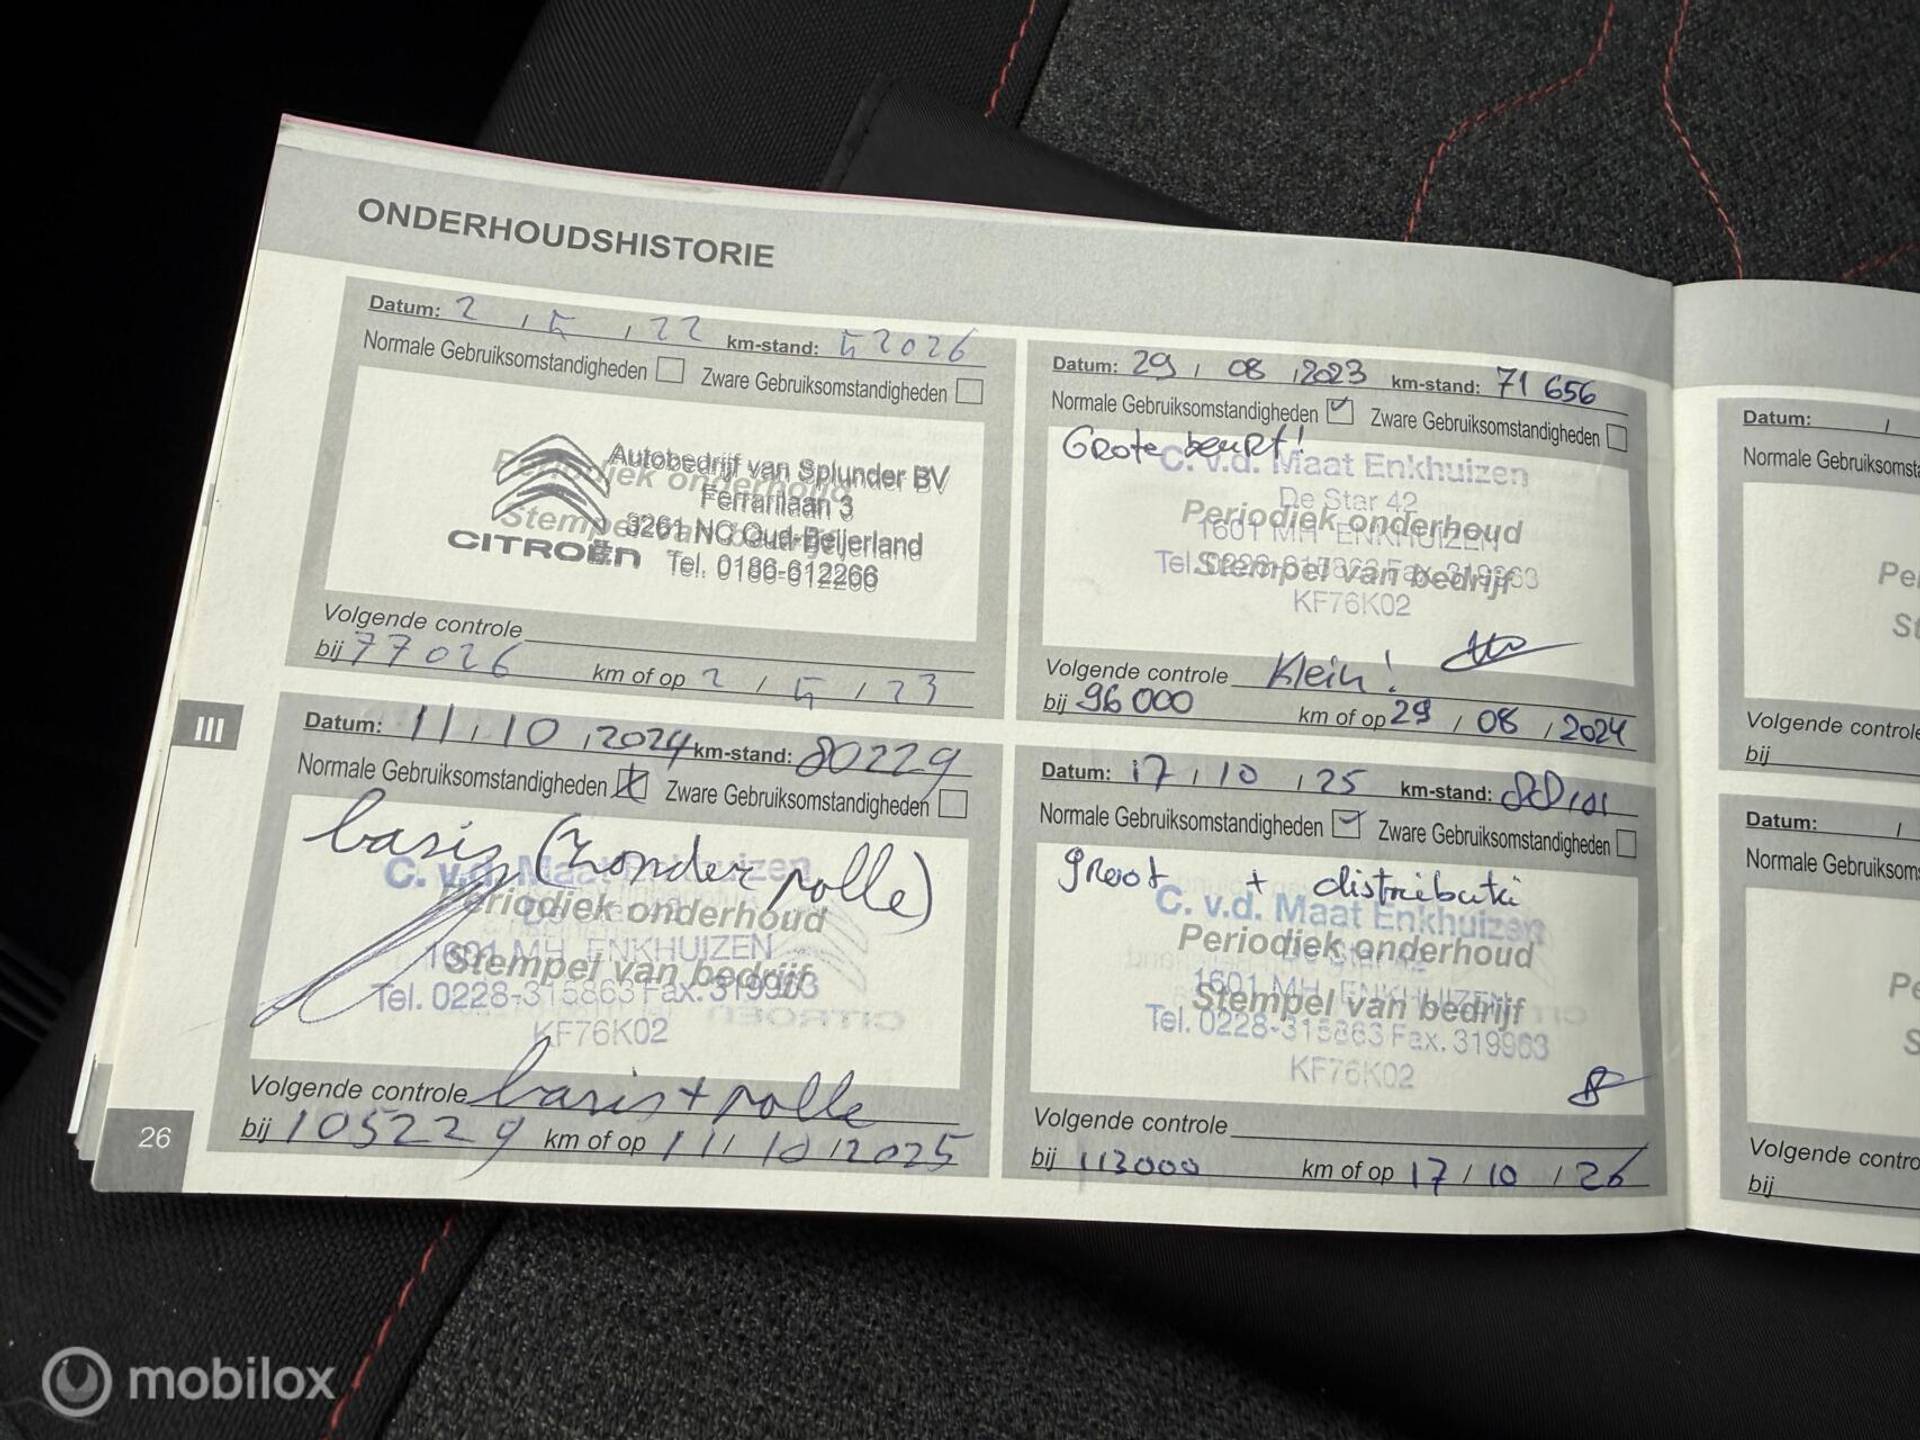 ONDERHOUDSHISTORIE
Datum: 2 / 5 / 22 km-stand: 52026
Normale Gebruiksomstandigheden Zware Gebruiksomstandigheden
Periodiek onderhoud
Stempel van bedrijf
CITROËN
Autobedrijf van Splunder BV
Ferrarilaan 3
3261 NC Oud-Beijerland
Tel. 0186-612266
Volgende controle
bij 77026 km of op 2 / 5 / 23
Datum: 29 / 08 / 2023 km-stand: 71 656
Normale Gebruiksomstandigheden Zware Gebruiksomstandigheden
Grote beurt!
C. v.d. Maat Enkhuizen
De Star 42
Periodiek onderhoud
1601 MH ENKHUIZEN
Stempel van bedrijf
Tel. 0228-315863 Fax. 319963
KF76K02
Volgende controle Klein!
bij 96 000 km of op 29 / 08 / 2024
III
Datum: 11 / 10 / 2024 km-stand: 80229
Normale Gebruiksomstandigheden Zware Gebruiksomstandigheden
basis (zonder polle)
C. v.d. Maat Enkhuizen
Periodiek onderhoud
1601 MH ENKHUIZEN
Stempel van bedrijf
Tel. 0228-315863 Fax. 319963
KF76K02
Volgende controle basis + polle
bij 105229 km of op 11 / 10 / 2025
Datum: 17 / 10 / 25 km-stand: 88101
Normale Gebruiksomstandigheden Zware Gebruiksomstandigheden
groot + distributie
C. v.d. Maat Enkhuizen
Periodiek onderhoud
1601 MH ENKHUIZEN
Stempel van bedrijf
Tel. 0228-315863 Fax. 319963
KF76K02
Volgende controle
bij 113000 km of op 17 / 10 / 26
26
Datum: /
Normale Gebruiksomsta
Pe
St
Volgende controle
bij
Datum: /
Normale Gebruiksoms
Pe
S
Volgende contro
bij
mobilox